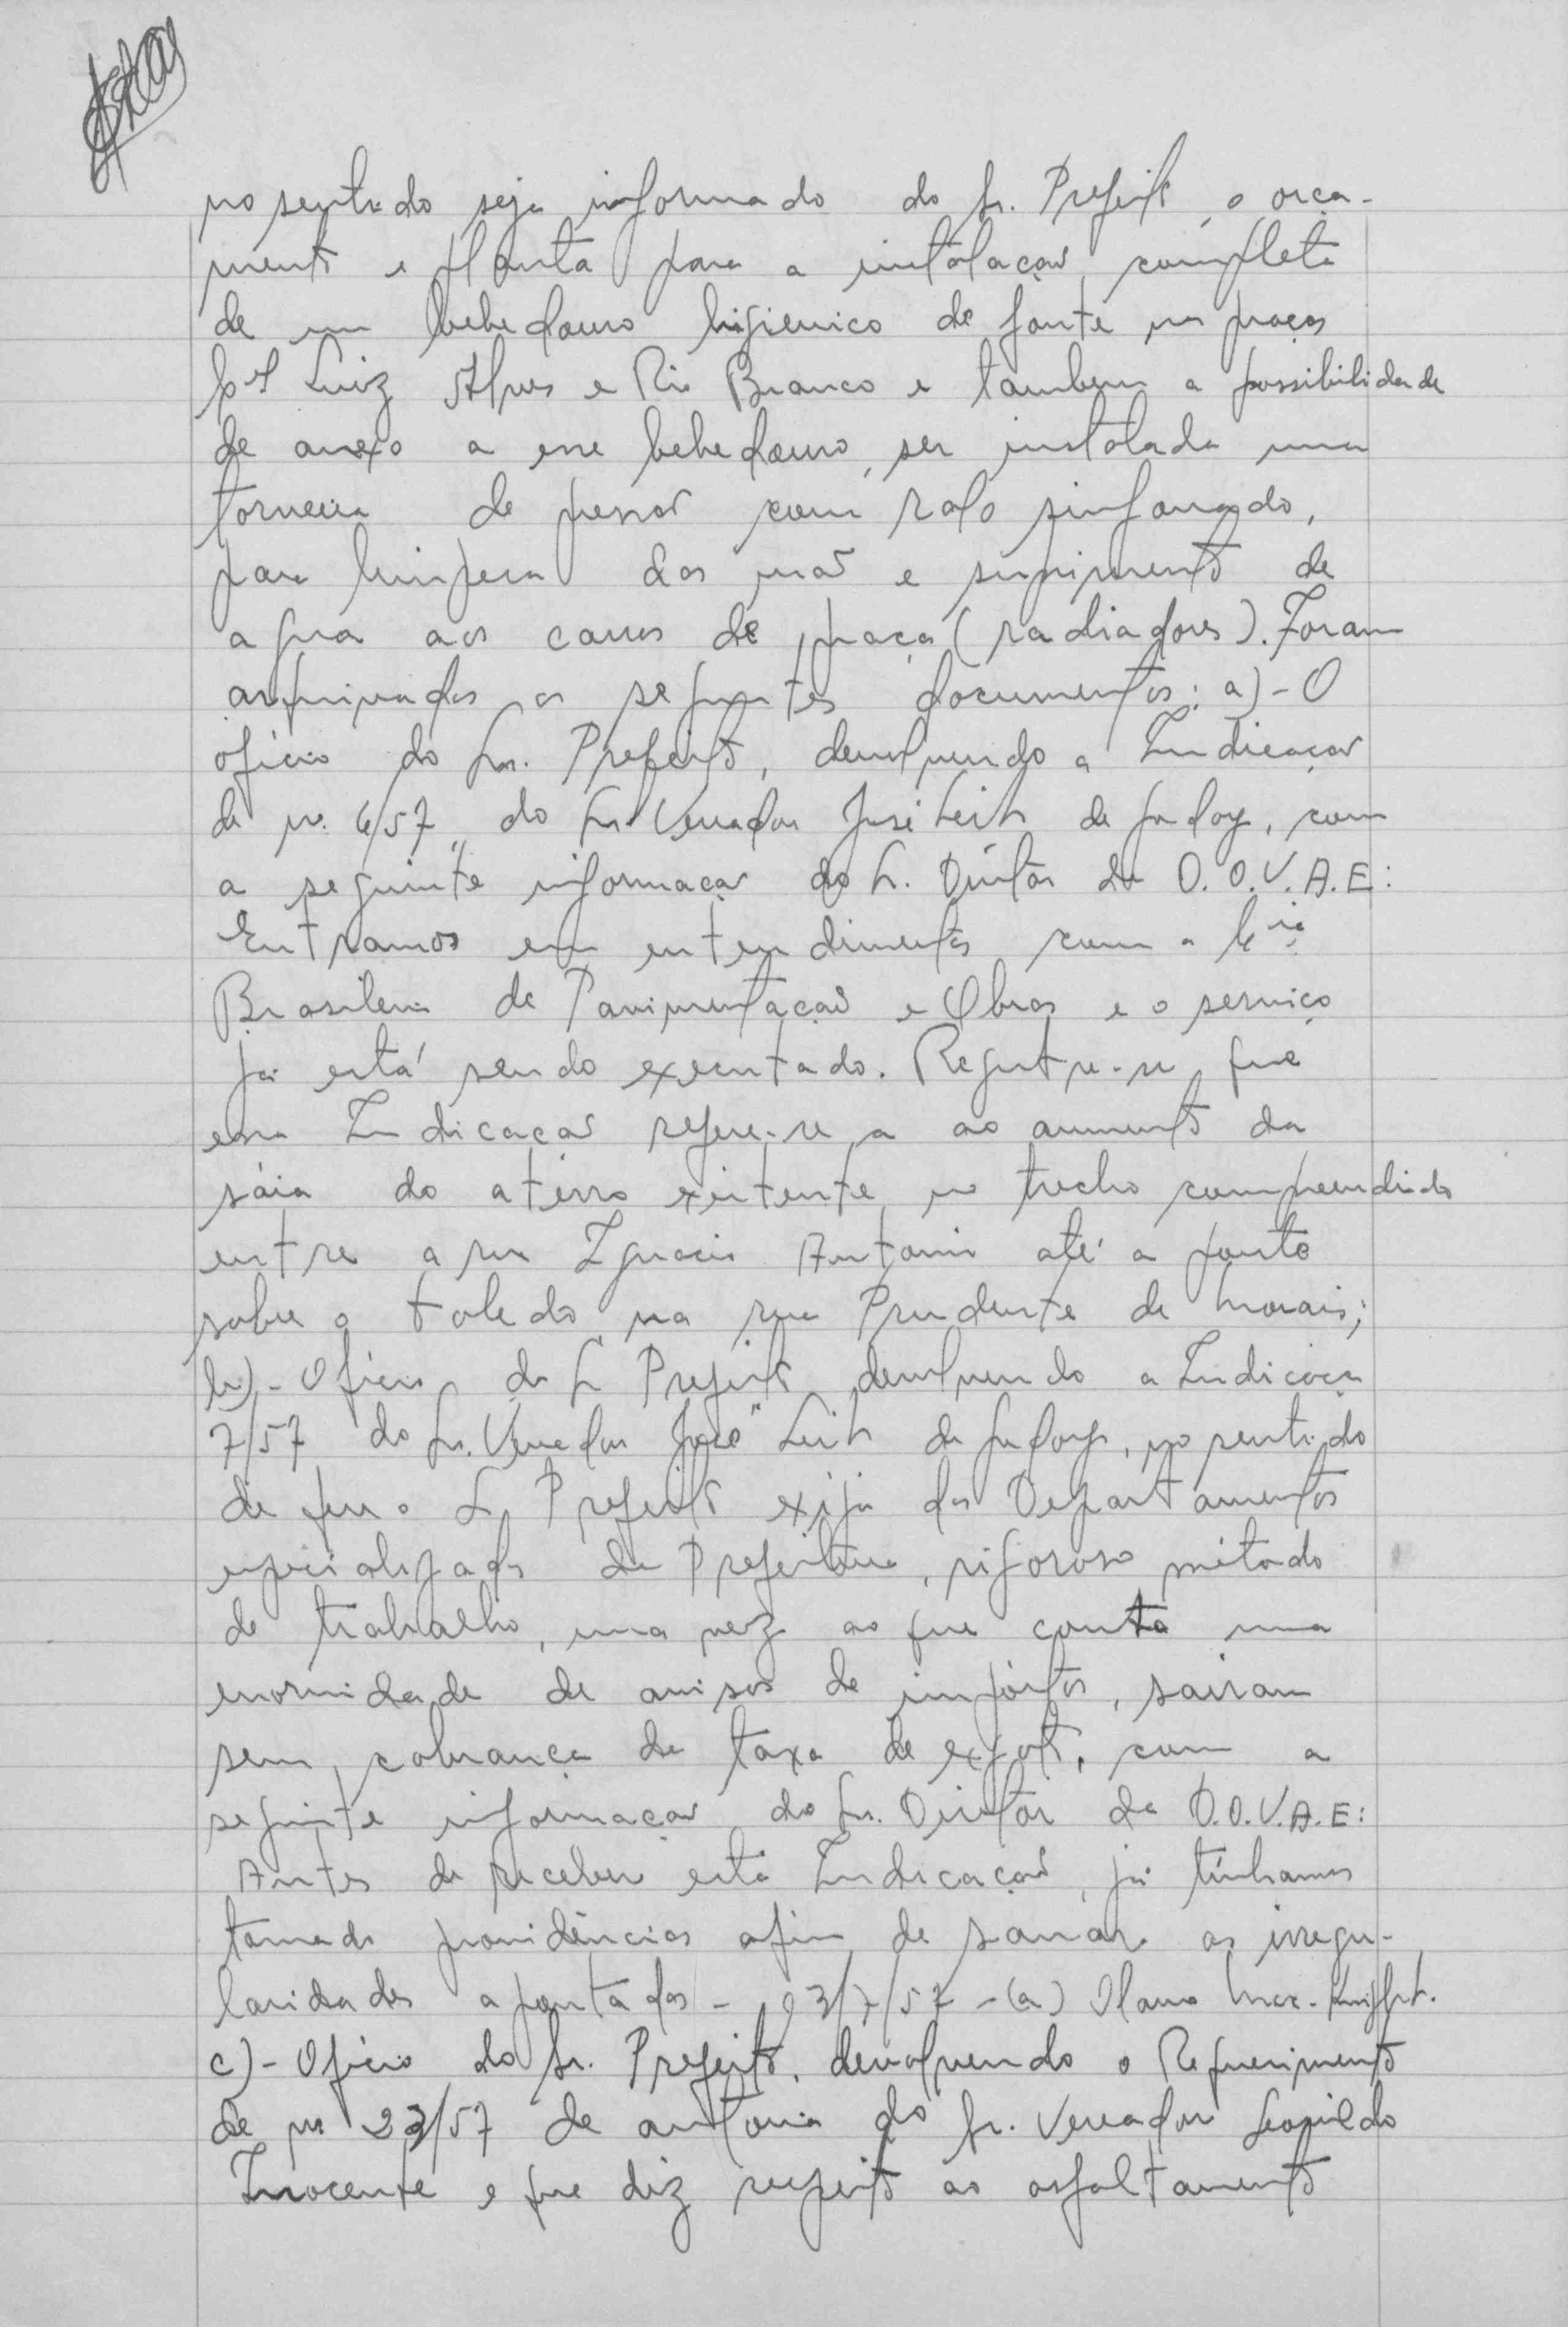 no sentido seja informado do Sr. Prefeito, o orça-
mento e planta para a instalação completa
de um bebedouro higienico de fonte nas praças
Cel Luiz Alves e Rio Branco e tambem a possibilidade
de anexo a esse bebedouro, ser instalada uma
torneira de pressão com ralo sinfonado,
para limpesa das mãos e suprimento de
agua aos carros de praça (radiadores). Foram
arquivados os seguintes documentos: a)- O
oficio do Sr. Prefeito, devolvendo a Indicação
de nº. 6/57, do Sr Vereador José Leite de Godoy, com
a seguinte informação do Sr. Diretor da D.O.V.A.E:
Entramos em entendimentos com a Cia
Brasileira de Pavimentação e Obras e o serviço
já está sendo executado. Registre-se que
essa Indicação refere-se a ao aumento da
sáia do atêrro existente no trecho compreendido
entre a rua Ignacio Antonio até a ponte
sobre o toledo na rua Prudente de Morais;
b)- Oficio do Sr Prefeito devolvendo a Indicação
7/57 do Sr. Vereador José Leite de Godoy, no sentido
de que o Sr Prefeito exija dos Departamentos
especializados da Prefeitura, rigoroso método
de trabalho, uma vez ao que consta uma
enormidade de avisos de impôstos, sairam
sem cobrança da taxa de exgoto, com a
seguinte informação do Sr. Diretor da D.O.V.A.E:
Antes de receber esta Indicação, já tínhamos
tomado providências afim de sanar as irregu-
laridades apontadas - 23/7/57 -(a) Olavo
c)- Oficio do Sr. Prefeito, devolvendo o Requerimento
de nº 23/57 de autoria do Sr. Vereador Leonildo
Inocente e que diz respeito ao asfaltamento